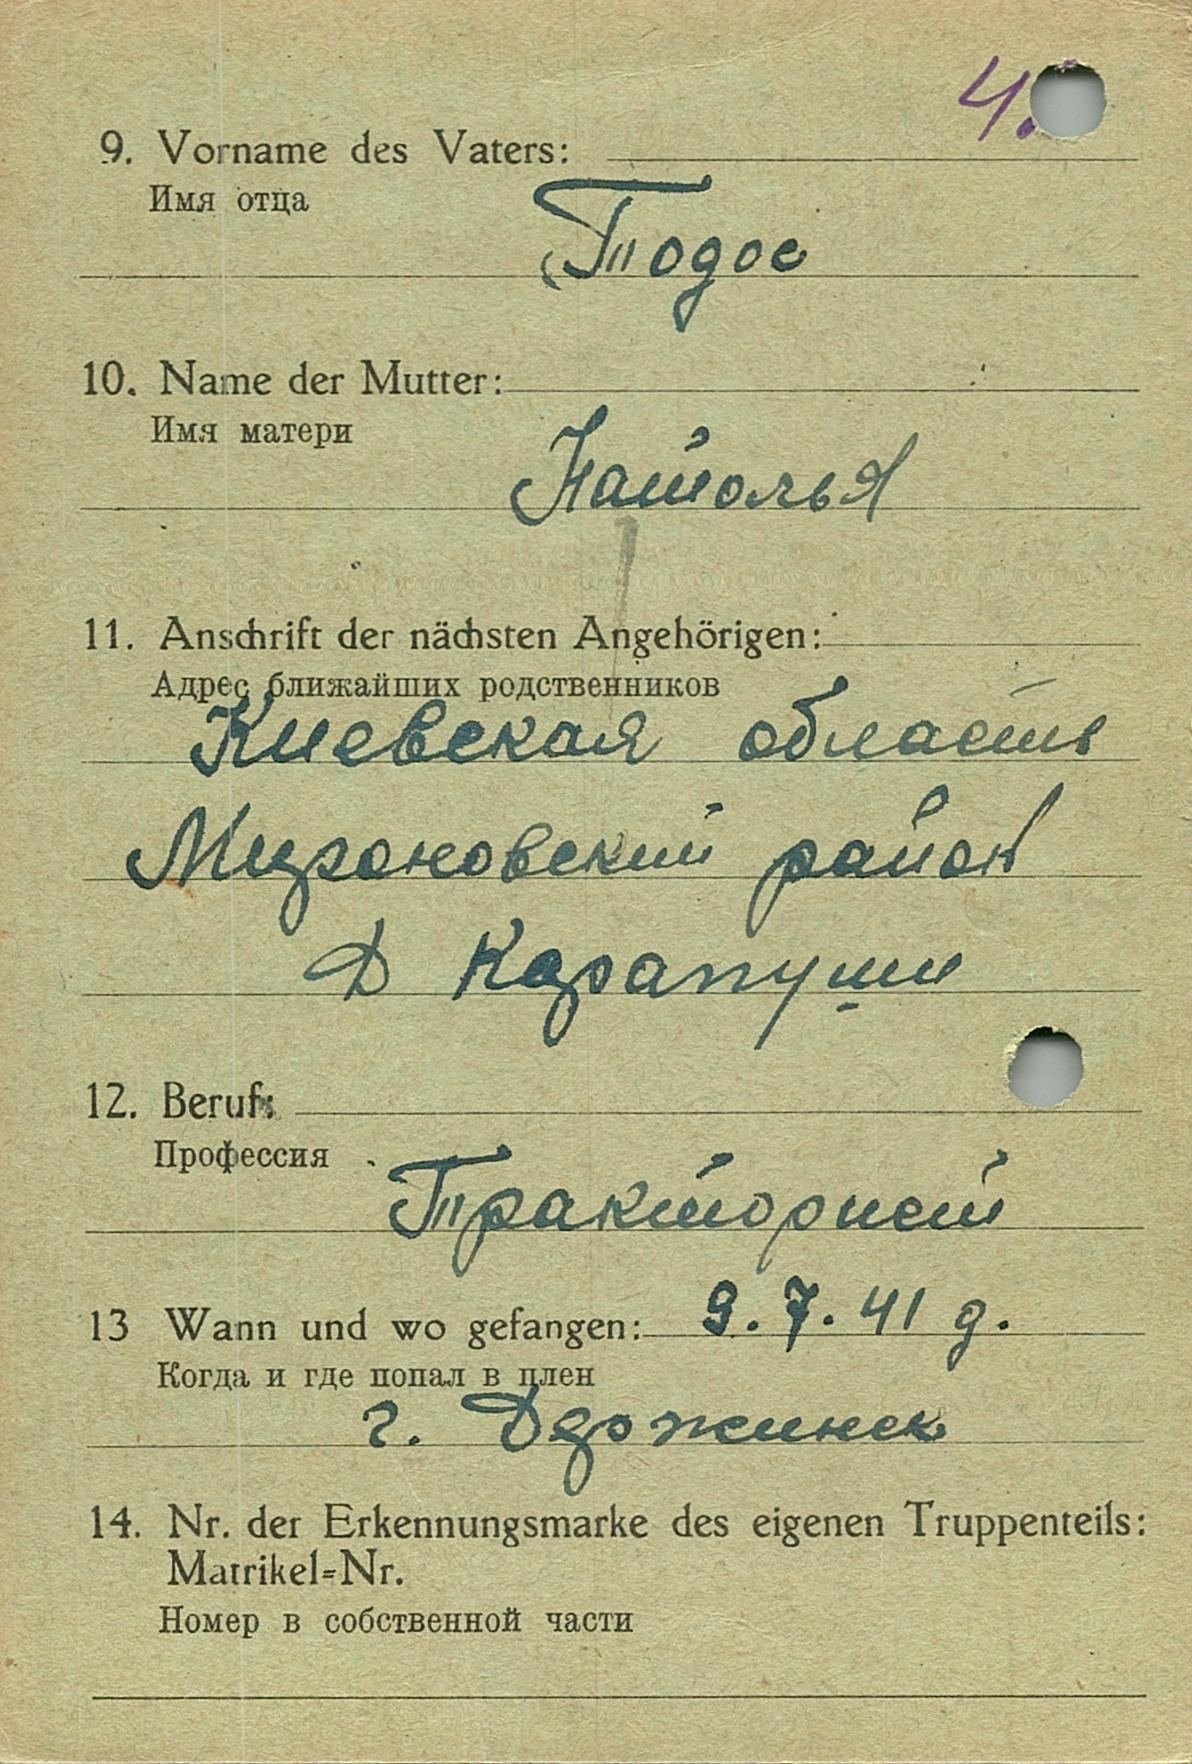 4.
9. Vorname des Vaters:
Имя отца
Тодос
10. Name der Mutter:
Имя матери
Натолья
11. Anschrift der nächsten Angehörigen:
Адрес ближайших родственников
Киевская область
Мироновский район
Д Карапуши
12. Beruf:
Профессия
Тракторист
13 Wann und wo gefangen: 9.7.41 д.
Когда и где попал в плен
г. Држинск
14. Nr. der Erkennungsmarke des eigenen Truppenteils:
Matrikel=Nr.
Номер в собственной части